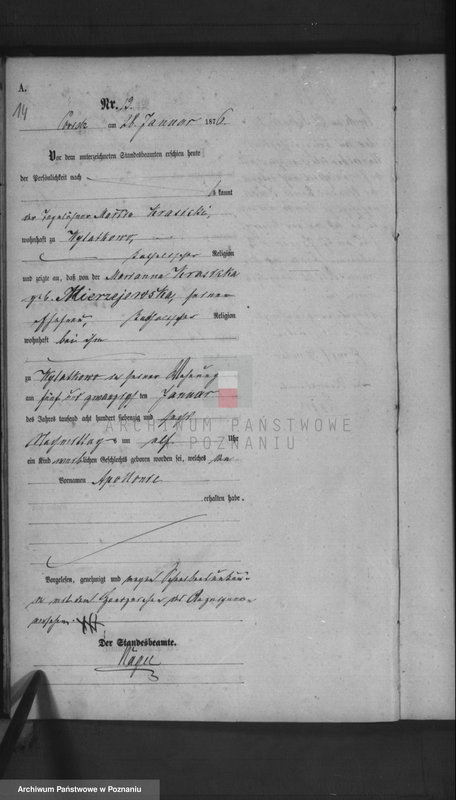 A.
14
Nr. 13.
am 28. Januar 1876.
Vor dem unterzeichneten Standesbeamten erschien heute
der Persönlichkeit nach
kannt
der Tagelöhner
wohnhaft zu
katholischer Religion
und zeigte an, daß von der Marianna
geb. Mierzejewska, seiner
Ehefrau, katholischer Religion
wohnhaft bei ihm
zu in seiner Wohnung
am fünf und zwanzigsten ten Januar
des Jahres tausend acht hundert siebenzig und sechs
Nachmittag s um elf Uhr
ein Kind weiblichen Geschlechts geboren worden sei, welches den
Vornamen Apollonie
erhalten habe.
Vorgelesen, genehmigt und wegen
mit dem Handzeichen des
versehen. +++
Der Standesbeamte.
ARCHIWUM PAŃSTWOWE
POZNANIU
Archiwum Państwowe w Poznaniu